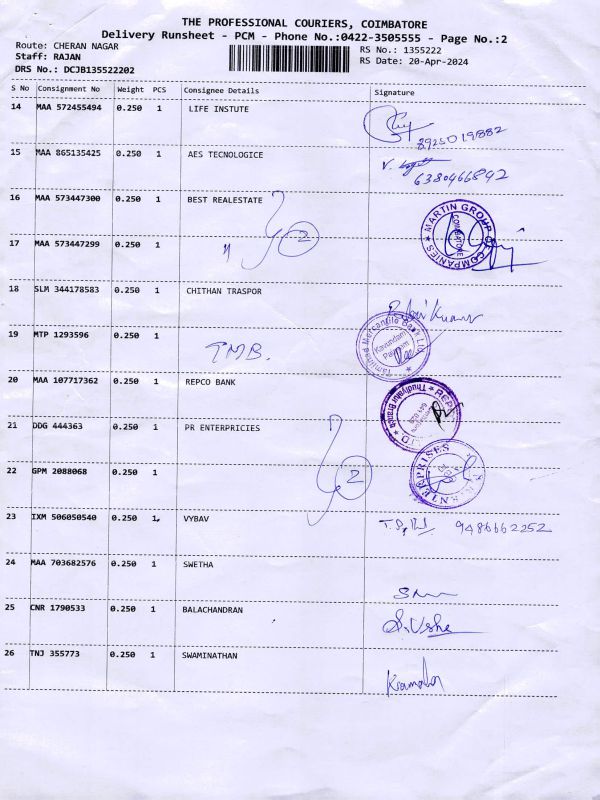 THE PROFESSIONAL COURIERS, COIMBATORE
Delivery Runsheet - PCM - Phone No.:0422-3505555 - Page No.:2
Route: CHERAN NAGAR RS No.: 1355222
Staff: RAJAN RS Date: 20-Apr-2024
DRS No.: DCJB135522202
S No Consignment No Weight PCS Consignee Details Signature
14 MAA 572455494 0.250 1 LIFE INSTUTE
8925019882
15 MAA 865135425 0.250 1 AES TECNOLOGICE
6380466842
16 MAA 573447300 0.250 1 BEST REALESTATE
MARTIN GROUP OF COMPANIES ★ COIMBATORE
17 MAA 573447299 0.250 1 " 2
18 SLM 344178583 0.250 1 CHITHAN TRASPOR
19 MTP 1293596 0.250 1 TMB.
Tamilnad Mercantile Bank Ltd
20 MAA 107717362 0.250 1 REPCO BANK
Thudiyalur Branch
21 DDG 444363 0.250 1 PR ENTERPRICIES
22 GPM 2088068 0.250 1 2
23 IXM 506050540 0.250 1, VYBAV 9486662252
24 MAA 703682576 0.250 1 SWETHA
25 CNR 1790533 0.250 1 BALACHANDRAN S.Usha
26 TNJ 355773 0.250 1 SWAMINATHAN